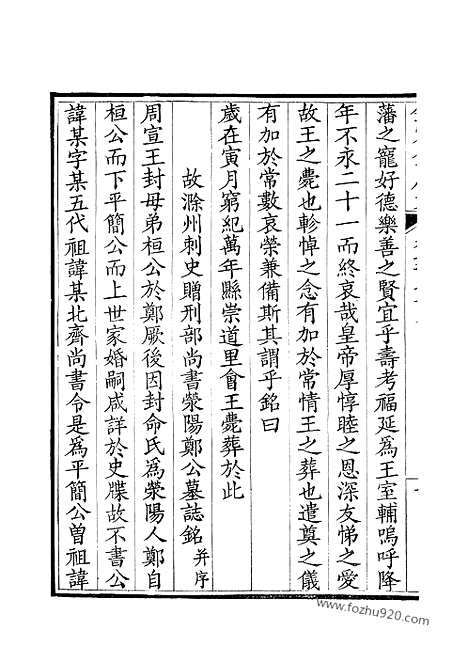 藩之寵好德樂善之賢宜乎壽考福延爲王室輔嗚呼降
年不永二十一而終哀哉皇帝厚惇睦之恩深友悌之愛
故王之薨也軫悼之念有加於常情王之葬也遣奠之儀
有加於常數哀榮兼備斯其謂乎銘曰
歲在寅月窮紀萬年縣崇道里會王薨葬於此
故滁州刺史贈刑部尚書滎陽鄭公墓誌銘并序
周宣王封母弟桓公於鄭厥後因封命氏爲滎陽人鄭自
桓公而下平簡公而上世家婚嗣咸詳於史牒故不書公
諱某字某五代祖諱某北齊尚書令是爲平簡公曾祖諱
www.fozhu920.com